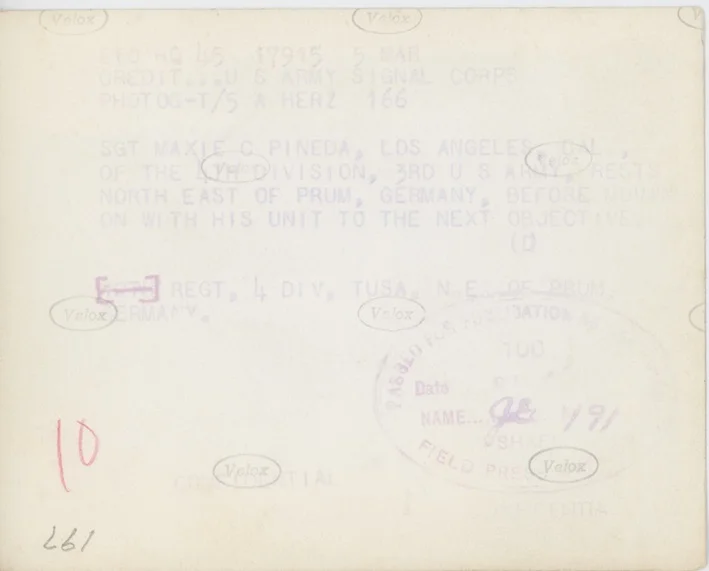 Velox Velox V
ETO HQ 45 17915 5 MAR
CREDIT...U S ARMY SIGNAL CORPS
PHOTOG-T/5 A HERZ 166
SGT MAXIE C PINEDA, LOS ANGELES, CAL.,
Velox Velox
OF THE 4TH DIVISION, 3RD U S ARMY, RESTS
NORTH EAST OF PRUM, GERMANY, BEFORE
ON WITH HIS UNIT TO THE NEXT OBJECTIVE.
(D
REGT, 4 DIV, TUSA, N.E. OF PRUM,
GERMANY.
Velox Velox
PASSED FOR PUBLICATION
Date
NAME...
FIELD PRESS
10
Velox Velox
CONFIDENTIAL
197